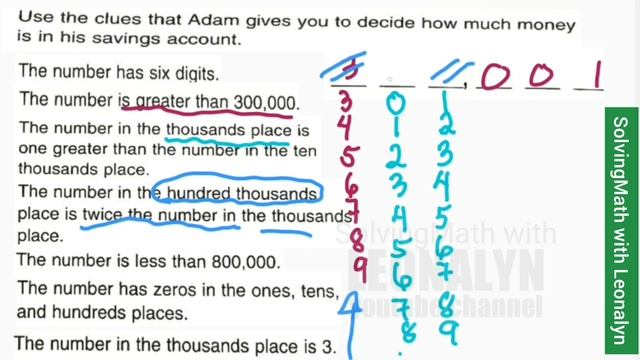 Use the clues that Adam gives you to decide how much money
is in his savings account.
The number has six digits.
The number is greater than 300,000.
The number in the thousands place is
one greater than the number in the ten
thousands place.
The number in the hundred thousands
place is twice the number in the thousands
place.
The number is less than 800,000.
The number has zeros in the ones, tens,
and hundreds places.
The number in the thousands place is 3.
3 , 0 0 1
3 0 1
4 1 2
5 2 3
6 3 4
7 4 5
8 5 6
9 6 7
4 7 8
8 9
SolvingMath with
LEONALYN
youtube channel
SolvingMath with Leonalyn